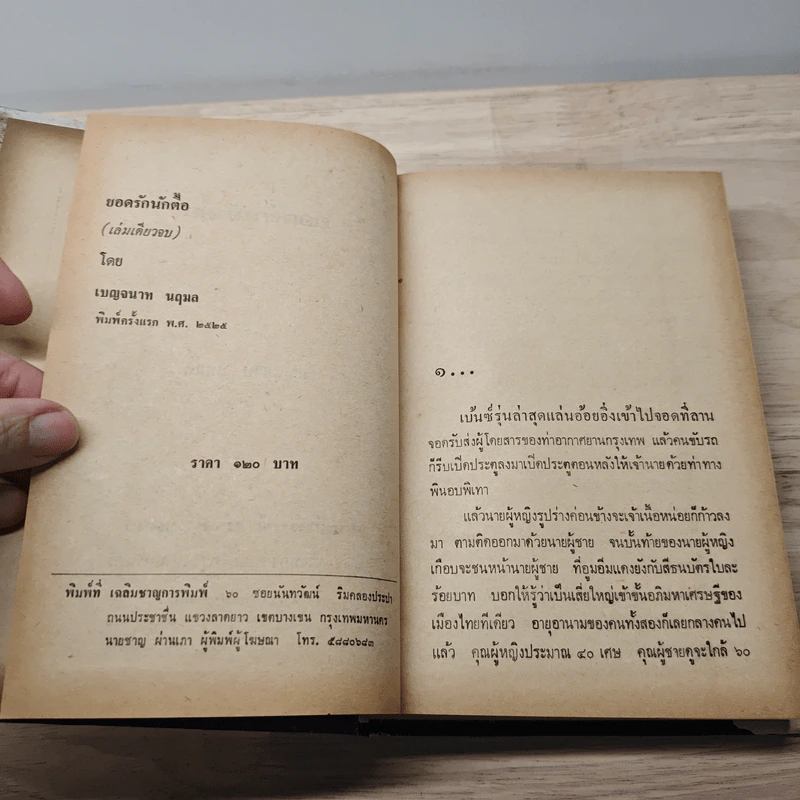 ยอดรักนักตื๊อ
(เล่มเดียวจบ)
โดย
เบญจนาท นฤมล
พิมพ์ครั้งแรก พ.ศ. ๒๕๒๕
ราคา ๑๒๐ บาท
พิมพ์ที่ เฉลิมชาญการพิมพ์ ๖๐ ซอยนันทวัฒน์ ริมคลองประปา
ถนนประชาชื่น แขวงลาดยาว เขตบางเขน กรุงเทพมหานคร
นายชาญ ผ่านเภา ผู้พิมพ์ผู้โฆษณา โทร. ๕๘๘๐๖๘๓
๑...
เบ้นซ์รุ่นล่าสุดแล่นอ้อยอิ่งเข้าไปจอดที่ลาน
จอดรับส่งผู้โดยสารของท่าอากาศยานกรุงเทพ แล้วคนขับรถ
ก็รีบเปิดประตูลงมาเปิดประตูตอนหลังให้เจ้านายด้วยท่าทาง
พินอบพิเทา
แล้วนายผู้หญิงรูปร่างค่อนข้างจะเจ้าเนื้อหน่อยก็ก้าวลง
มา ตามติดออกมาด้วยนายผู้ชาย จนบั้นท้ายของนายผู้หญิง
เกือบจะชนหน้านายผู้ชาย ที่อูมอิ่มแดงยังกับสีธนบัตรใบละ
ร้อยบาท บอกให้รู้ว่าเป็นเสี่ยใหญ่เข้าขั้นอภิมหาเศรษฐีของ
เมืองไทยทีเดียว อายุอานามของคนทั้งสองก็เลยกลางคนไป
แล้ว คุณผู้หญิงประมาณ ๔๐ เศษ คุณผู้ชายดูจะใกล้ ๖๐